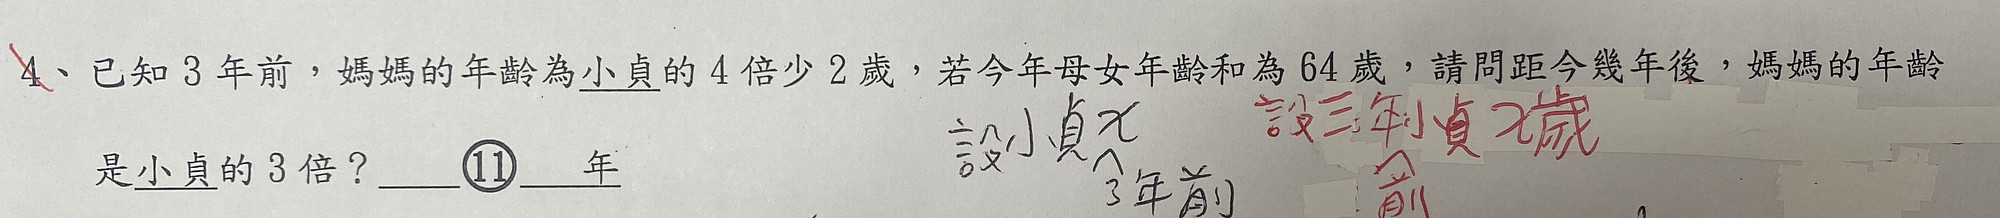 4、已知 3 年前，媽媽的年齡為小貞的 4 倍少 2 歲，若今年母女年齡和為 64 歲，請問距今幾年後，媽媽的年齡
是小貞的 3 倍？ ⑪ 年
設小貞x
3年前
設三年小貞x歲
前